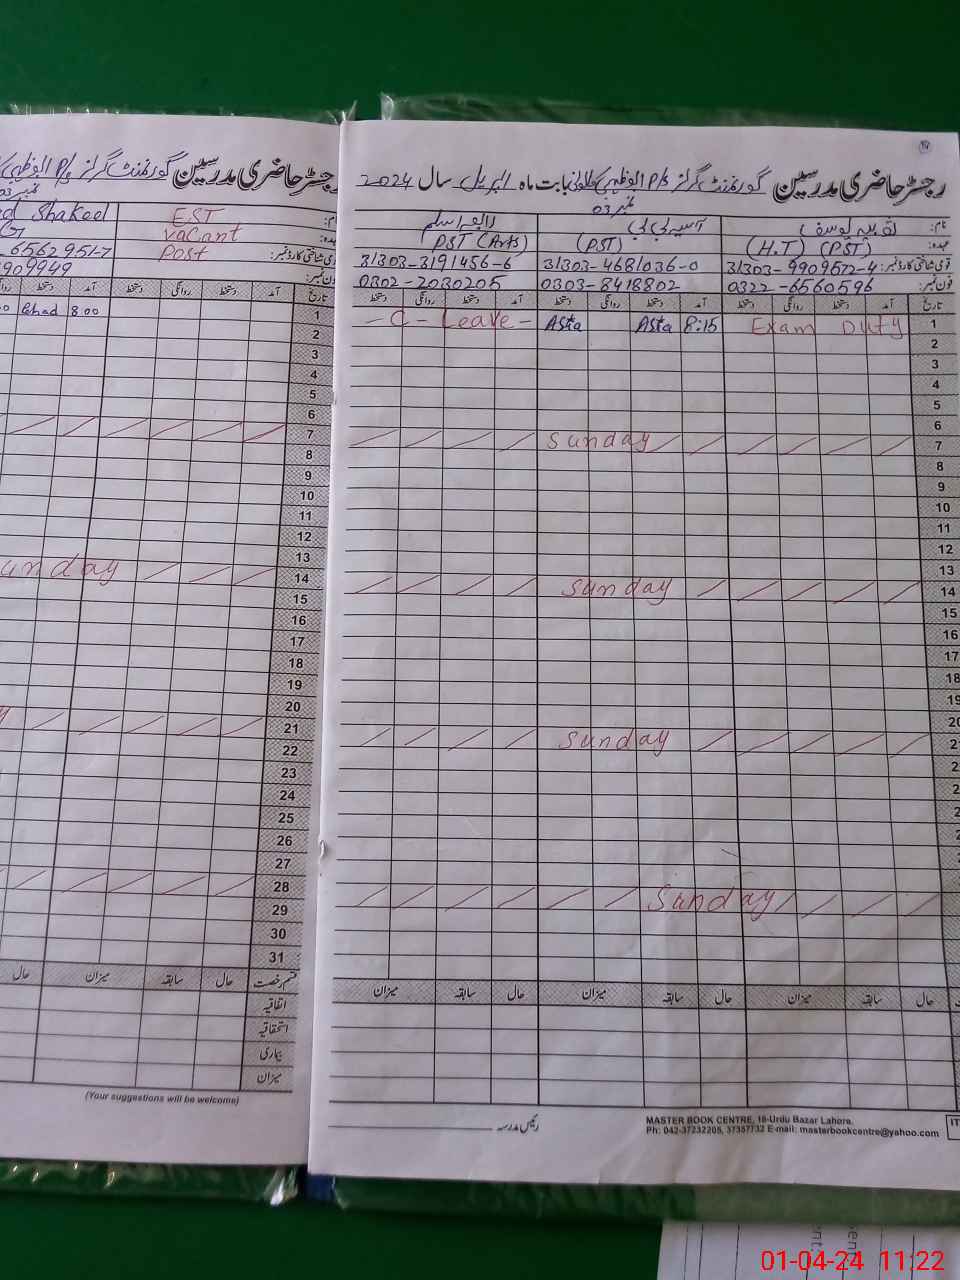 رجسٹر حاضری مدرسین گورنمنٹ گرلز P/S ابوظہبی کالونی بابت ماہ اپریل سال 2024
نمبر 03
نام:
آسیہ بی بی
رابعہ اسلم
عہدہ: (H.T) (PST)
(PST)
PST (Arts)
قومی شناختی کارڈ نمبر: 31303-9909572-4
31303-4681036-0
31303-3191456-6
فون نمبر: 0322-6560596
0303-8418802
0302-2030205
تاریخ آمد دستخط روانگی دستخط آمد دستخط روانگی دستخط آمد دستخط روانگی دستخط
1 Exam Duty
8:15 Asta Asta
- C - Leave -
2
3
4
5
6
7 Sunday
8
9
10
11
12
13
14 Sunday
15
16
17
18
19
20
21 Sunday
28 Sunday
حال سابقہ میزان حال سابقہ میزان حال سابقہ میزان
رئیس مدرسہ
MASTER BOOK CENTRE, 18-Urdu Bazar Lahore.
Ph: 042-37232205, 37357732 E-mail: masterbookcentre@yahoo.com
رجسٹر حاضری مدرسین گورنمنٹ گرلز P/S ابوظہبی
نام: EST
Shakeel
عہدہ: Vacant
قومی شناختی کارڈ نمبر: Post
65629517
فون نمبر:
909949
تاریخ آمد دستخط روانگی دستخط آمد دستخط
1 8:00
2
3
4
5
6
7
8
9
10
11
12
13
14 Sunday
15
16
17
18
19
20
21
22
23
24
25
26
27
28
29
30
31
قسم رخصت حال سابقہ میزان حال
اتفاقیہ
استحقاقیہ
بیماری
میزان
(Your suggestions will be welcome)
01-04-24 11:22